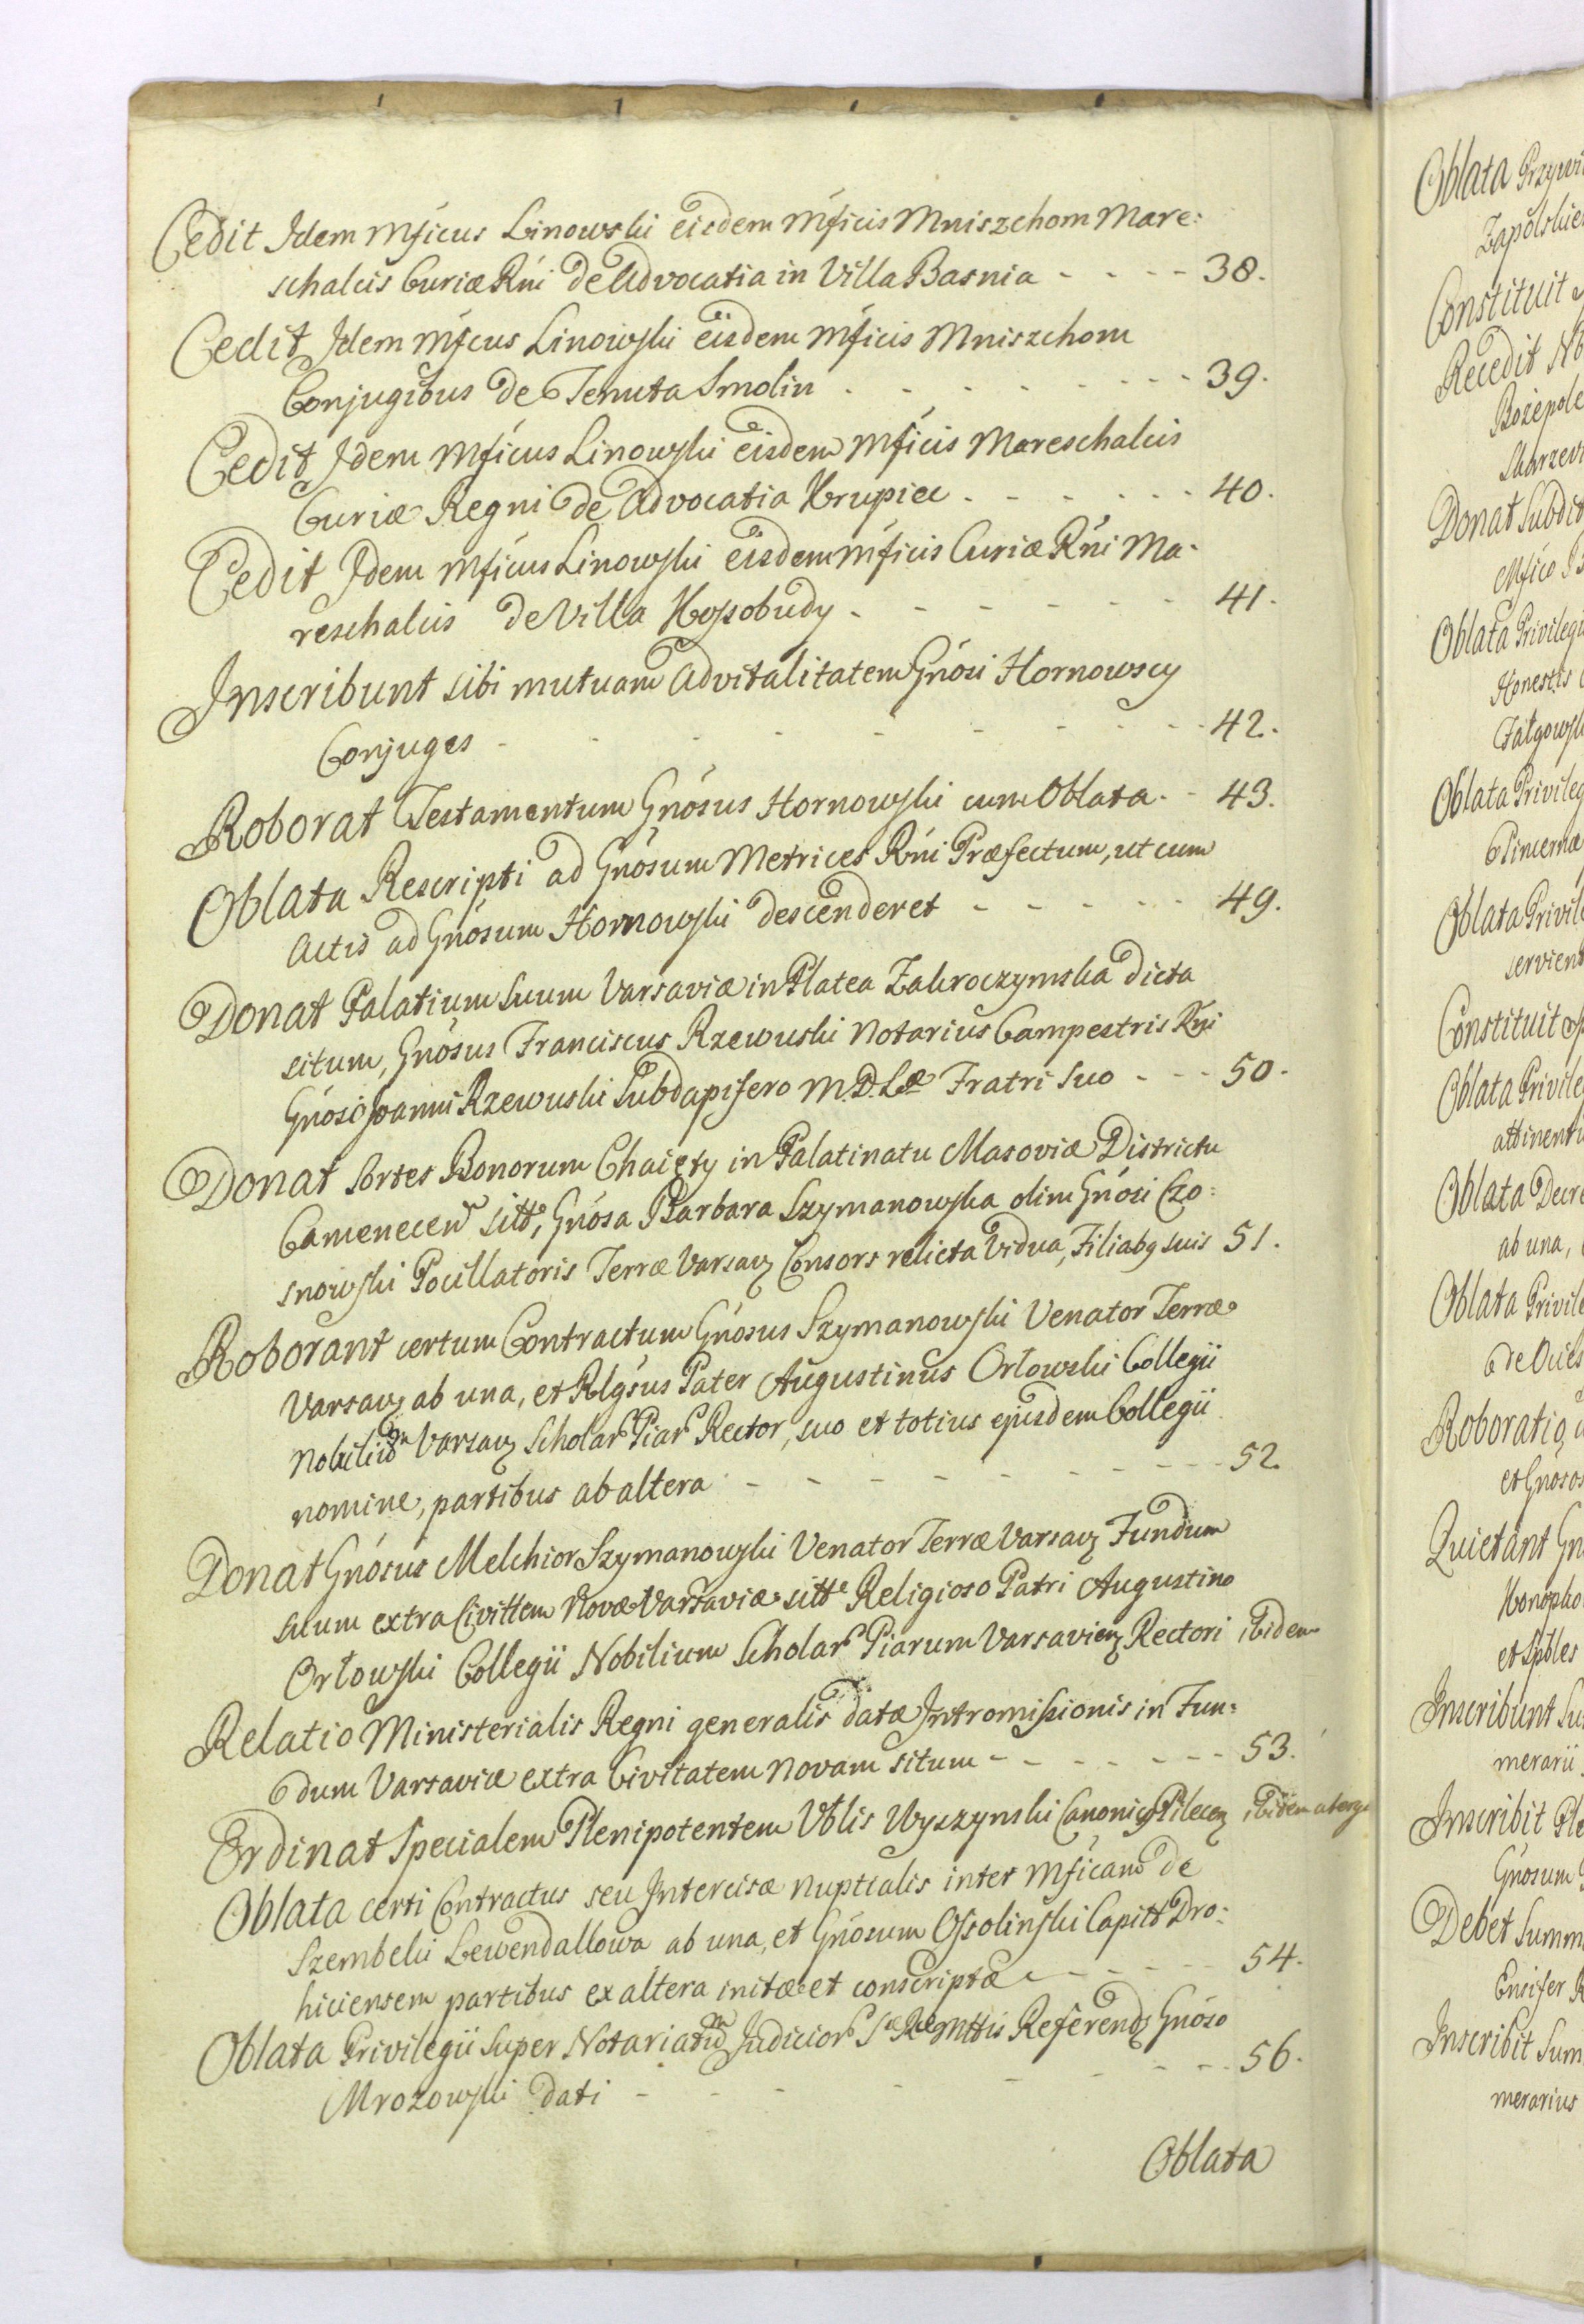 Cedit Idem Mficus Linowski eisdem Mficis Mniszchom Mare:
schalcis Curiæ Rni de Advocatia in Villa Basnia - - - - 38.
Cedit Idem Mficus Linowski eisdem Mficis Mniszchom
Conjugibus de Tenuta Smolin - - - - - - - - 39.
Cedit Idem Mficus Linowski eisdem Mficis Mareschalcis
Curiæ Regni de Advocatia Krupiec - - - - - - 40.
Cedit Idem Mficus Linowski eisdem Mficis Curiæ Rni Ma-
reschalcis de Villa Kossobudy - - - - - - 41.
Inscribunt sibi mutuam Advitalitatem Gnosi Hornowscy
Conjuges - - - - - - - - - 42.
Roborat Testamentum Gnosus Hornowski cum Oblata - - 43.
Oblata Rescripti ad Gnosum Metrices Rni Præfectum, ut cum
Actis ad Gnosum Hornowski descenderet - - - - - 49.
Donat Palatium suum Varsaviæ in Platea Zakroczymska dicta
situm, Gnosus Franciscus Rzewuski Notarius Campestris Rni
Gnoso Joanni Rzewuski Subdapifero M.D.Læ Fratri suo - - - 50.
Donat sortes Bonorum Chaięty in Palatinatu Masoviæ Districtu
Camenecen sitt, Gnosa Barbara Szymanowska olim Gnosi Czo:
snowski Pocillatoris Terræ Varsav Consors relicta Vidua, Filiabq suis 51.
Roborant certum Contractum Gnosus Szymanowski Venator Terræ
Varsav ab una, et Rlgsus Pater Augustinus Orłowski Collegii
Nobiliũ Varsav Scholar Piar Rector, suo et totius ejusdem Collegii
nomine, partibus ab altera - - - - - - - - 52.
Donat Gnosus Melchior Szymanowski Venator Terræ Varsav Fundum
suum extra Civittem Novæ Varsaviæ sitt Religioso Patri Augustino
Orłowski Collegii Nobilium Scholar Piarum Varsavien Rectori ibidem
Relatio Ministerialis Regni generalis datæ Intromissionis in Fun:
dum Varsaviæ extra Civitatem Novam situm - - - - - - - 53.
Ordinat Specialem Plenipotentem Vblis Wyczynski Canonicq Pilecen ibidem a tergo
Oblata certi Contractus seu Intercisæ nuptialis inter Mficam de
Szembeki Lewendallowa ab una, et Gnosum Ossolinski Capitt Dro:
hiciensem partibus ex altera initæ et conscriptæ - - - - - 54.
Oblata Privilegii super Notariatũ Judicior Sæ Ræ Mttis Referend Gnoso
Mrozowski dati - - - - - - - 56.
Oblata
Oblata
Constituit
Recedit
Donat
Oblata
Oblata
Oblata
Constituit
Oblata
Oblata
ab una,
Oblata
Roboratio
Quietant
Inscribunt
Inscribit
Gnosum
Debet
Ensifer
Inscribit
merarius